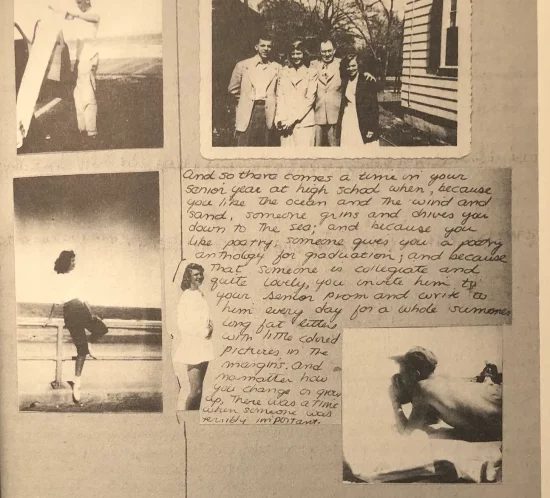 And so there comes a time in your
senior year at high school when, because
you like the ocean and the wind and
sand, someone grins and drives you
down to the sea; and because you
like poetry, someone gives you a poetry
anthology for graduation; and because
that someone is collegiate and
quite lovely, you invite him to
your senior prom and write to
him every day for a whole summer
long fat letters
with little colored
pictures in the
margins. And
no matter how
you change or grow
up, there was a time
when someone was
terribly important.